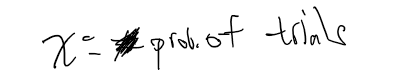 x = prob. of trials